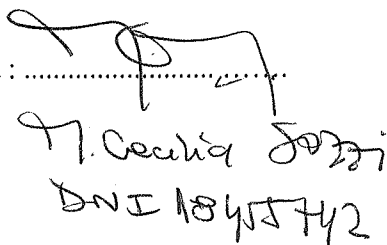 : ........................
M. Cecilia Sozzi
DNI 18455742